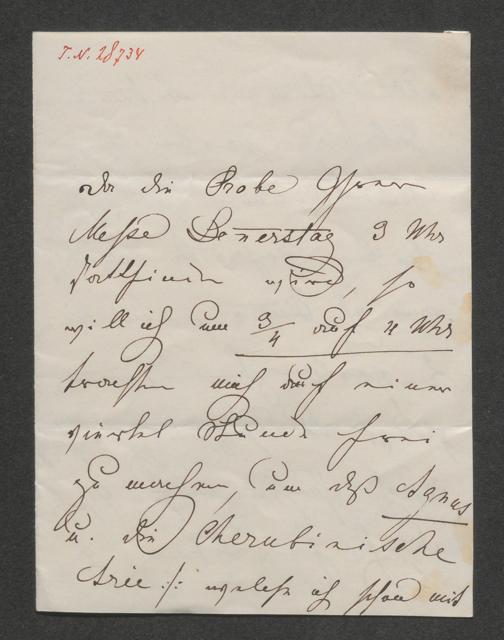 T.N. 28734
oder die Probe Ihrer
Messe Donerstag 9 Uhr
stattfinden wird, so
will ich um 3/4 auf 11 Uhr
trachten mich auf einer
viertel Stunde frei
zu machen, um das Agnus
u. die Cherubinische
Arie :/: welche ich schon mit